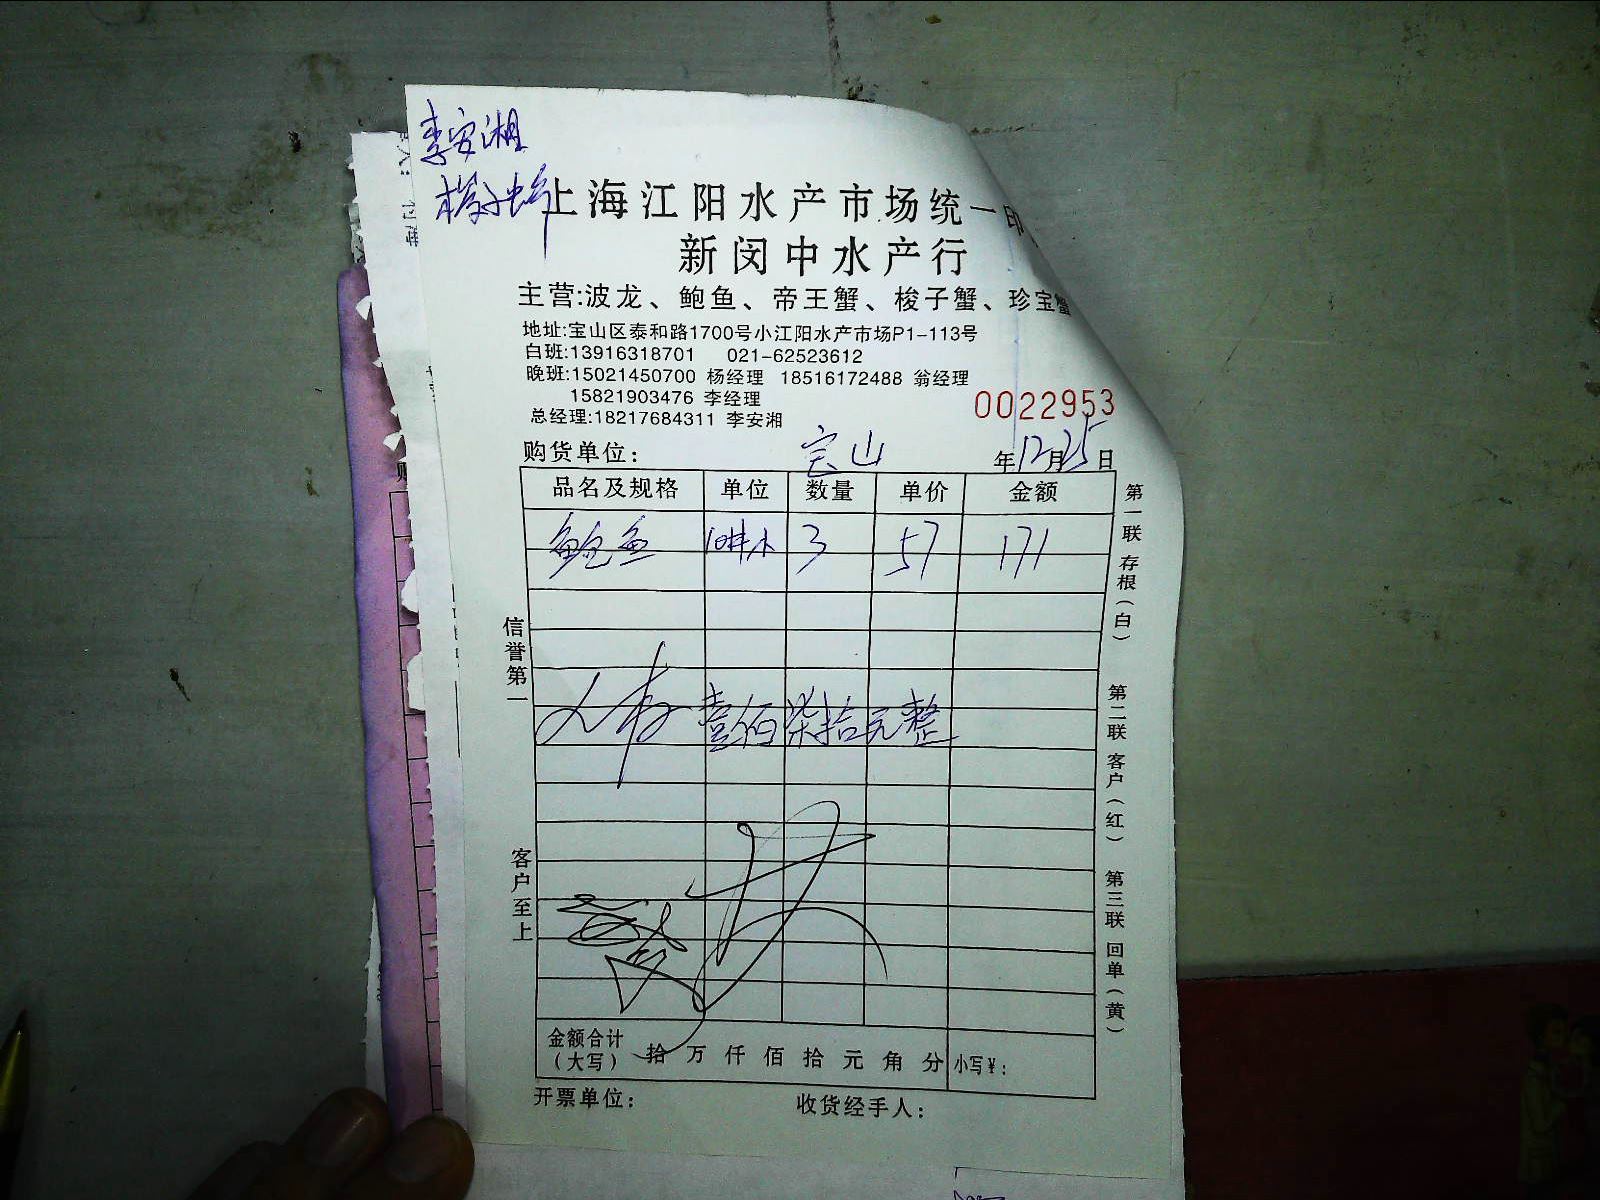 李安湘
梭子蟹
上海江阳水产市场统一印
新闵中水产行
主营:波龙、鲍鱼、帝王蟹、梭子蟹、珍宝蟹
地址:宝山区泰和路1700号小江阳水产市场P1-113号
白班:13916318701 021-62523612
晚班:15021450700 杨经理 18516172488 翁经理
15821903476 李经理
总经理:18217684311 李安湘
0022953
购货单位: 宝山 年12月25日
品名及规格 单位 数量 单价 金额
鲍鱼 3 57 171
壹佰柒拾元整
金额合计
(大写) 拾 万 仟 佰 拾 元 角 分 小写¥:
开票单位: 收货经手人:
信誉第一
客户至上
第一联 存根(白)
第二联 客户(红)
第三联 回单(黄)